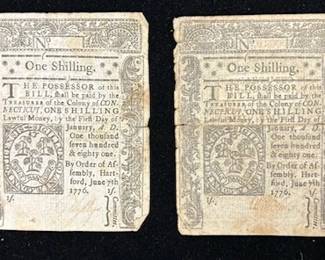 No
One Shilling.
THE POSSESSOR of this
BILL, shall be paid by the
TREASURER of the Colony of CON-
NECTICUT, ONE SHILLING
Lawful Money, by the First Day of
January, A. D.
One thousand
seven hundred
& eighty one.
By Order of Af-
fembly, Hart-
ford, June 7th
1776.
1/.
1/.
Committee.
No
One Shilling.
THE POSSESSOR of this
BILL, shall be paid by the
TREASURER of the Colony of CON-
NECTICUT, ONE SHILLING
Lawful Money, by the First Day of
January, A. D.
One thousand
seven hundred
& eighty one.
By Order of Af-
fembly, Hart-
ford, June 7th
1776.
1/.
1/.
Committee.